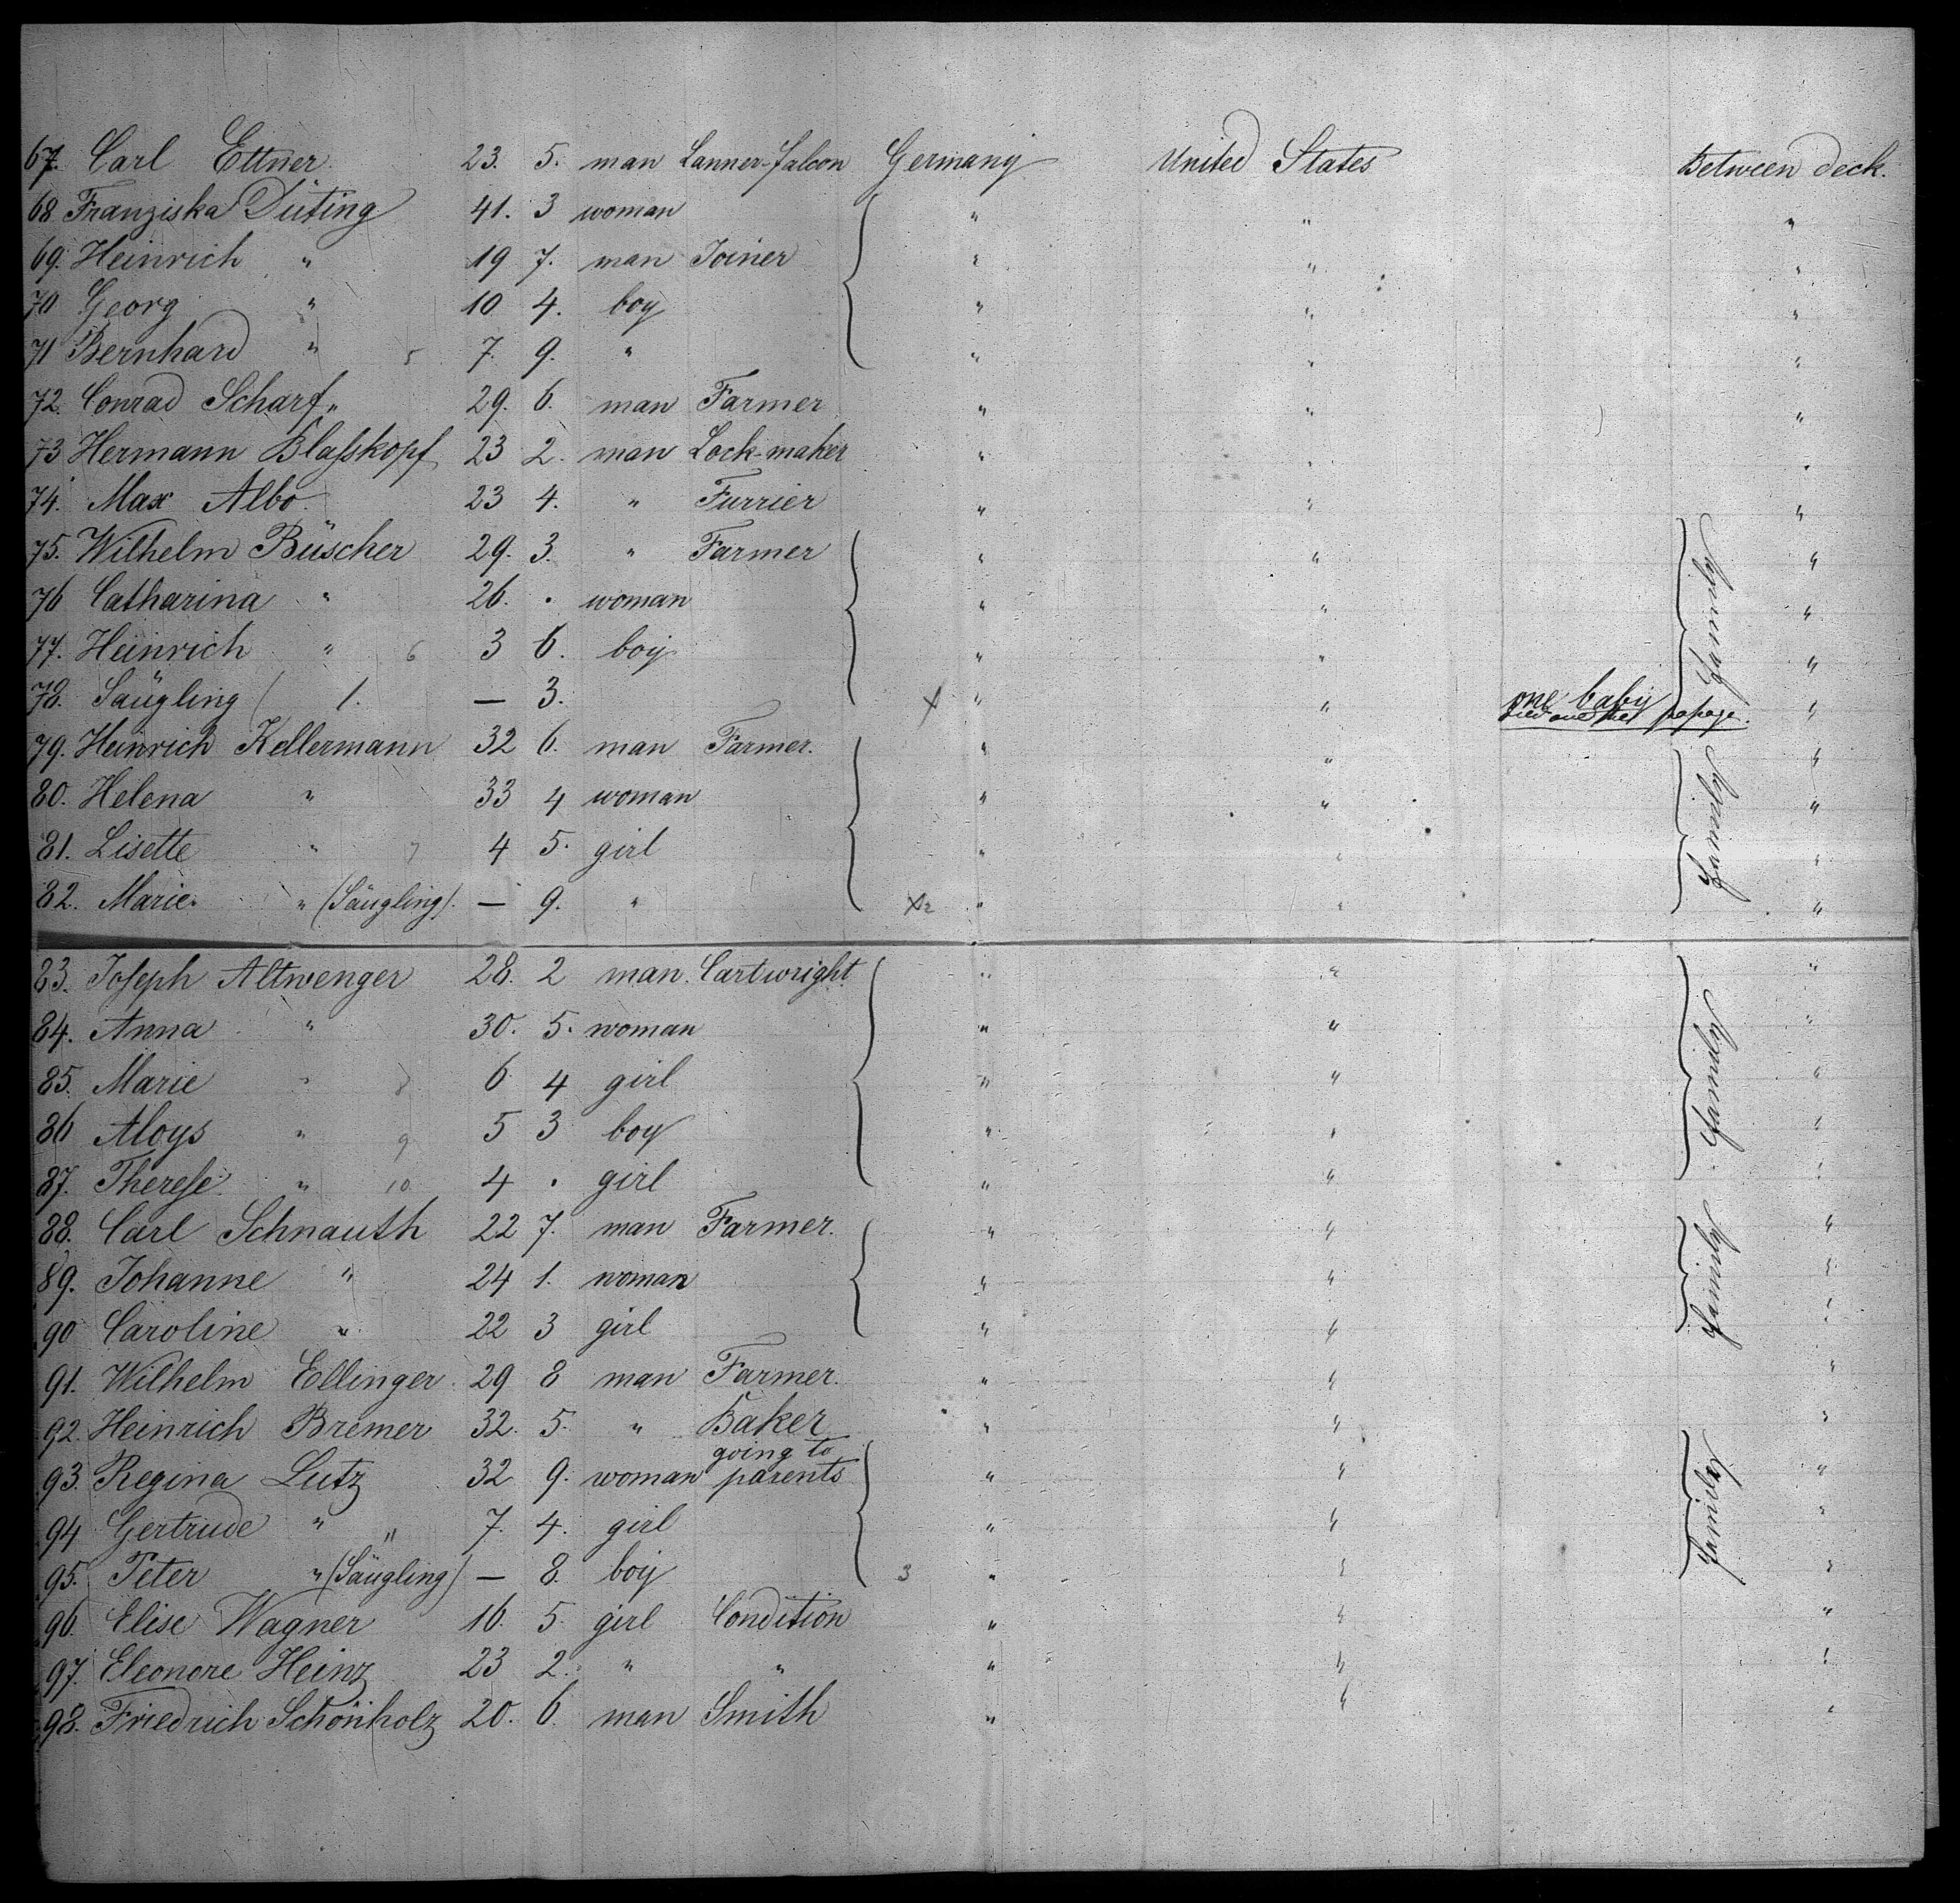 67. Carl Ettner 23. 5. man Lanner-falcon Germany United States Between deck.
68. Franziska Düting 41. 3 woman " " "
69. Heinrich " 19 7. man Joiner " " "
70 Georg " 10 4. boy " " "
71 Bernhard " 5 7. 9. " " " "
72. Conrad Scharf " 29. 6. man Farmer " " "
73 Hermann Blaſskopf 23 2. man Lock-maker " " "
74. Max Albo. 23 4. " Furrier " " "
75. Wilhelm Büscher 29. 3. " Farmer " " family "
76 Catharina " 26. . woman " " "
77. Heinrich " 6 3 6. boy " " "
78. Saügling ( 1. — 3. X " " one baby "
died one the paſsage.
79. Heinrich Kellermann 32 6. man Farmer. " " family "
80. Helena " 33 4 woman " " "
81. Lisette " 7 4 5. girl " " "
82. Marie. " (Säugling). — 9. " X2 " " "
83. Joſeph Altwenger 28. 2 man. Cartwright " " family "
84. Anna " 30. 5. woman " " "
85. Marie " 8 6 4 girl " " "
86 Aloys " 9 5 3 boy " " "
87. Thereſe. " 10 4 . girl " " "
88. Carl Schnauth 22 7. man Farmer. " " family "
89. Johanne " 24 1. woman " " "
90 Caroline " 22 3 girl " " "
91. Wilhelm Ellinger. 29 8 man Farmer. " " "
92. Heinrich Bremer 32. 5. " Baker " " "
93. Regina Lutz 32 9. woman going to parents " " family "
94 Gertrude " 11 7. 4. girl " " "
95. Peter " (Säugling) — 8. boy 3 " " "
96. Elise Wagner 16. 5. girl Condition " " "
97. Eleonore Heinz 23 2. " " " " "
98. Friedrich Schönholz 20. 6. man Smith " " "